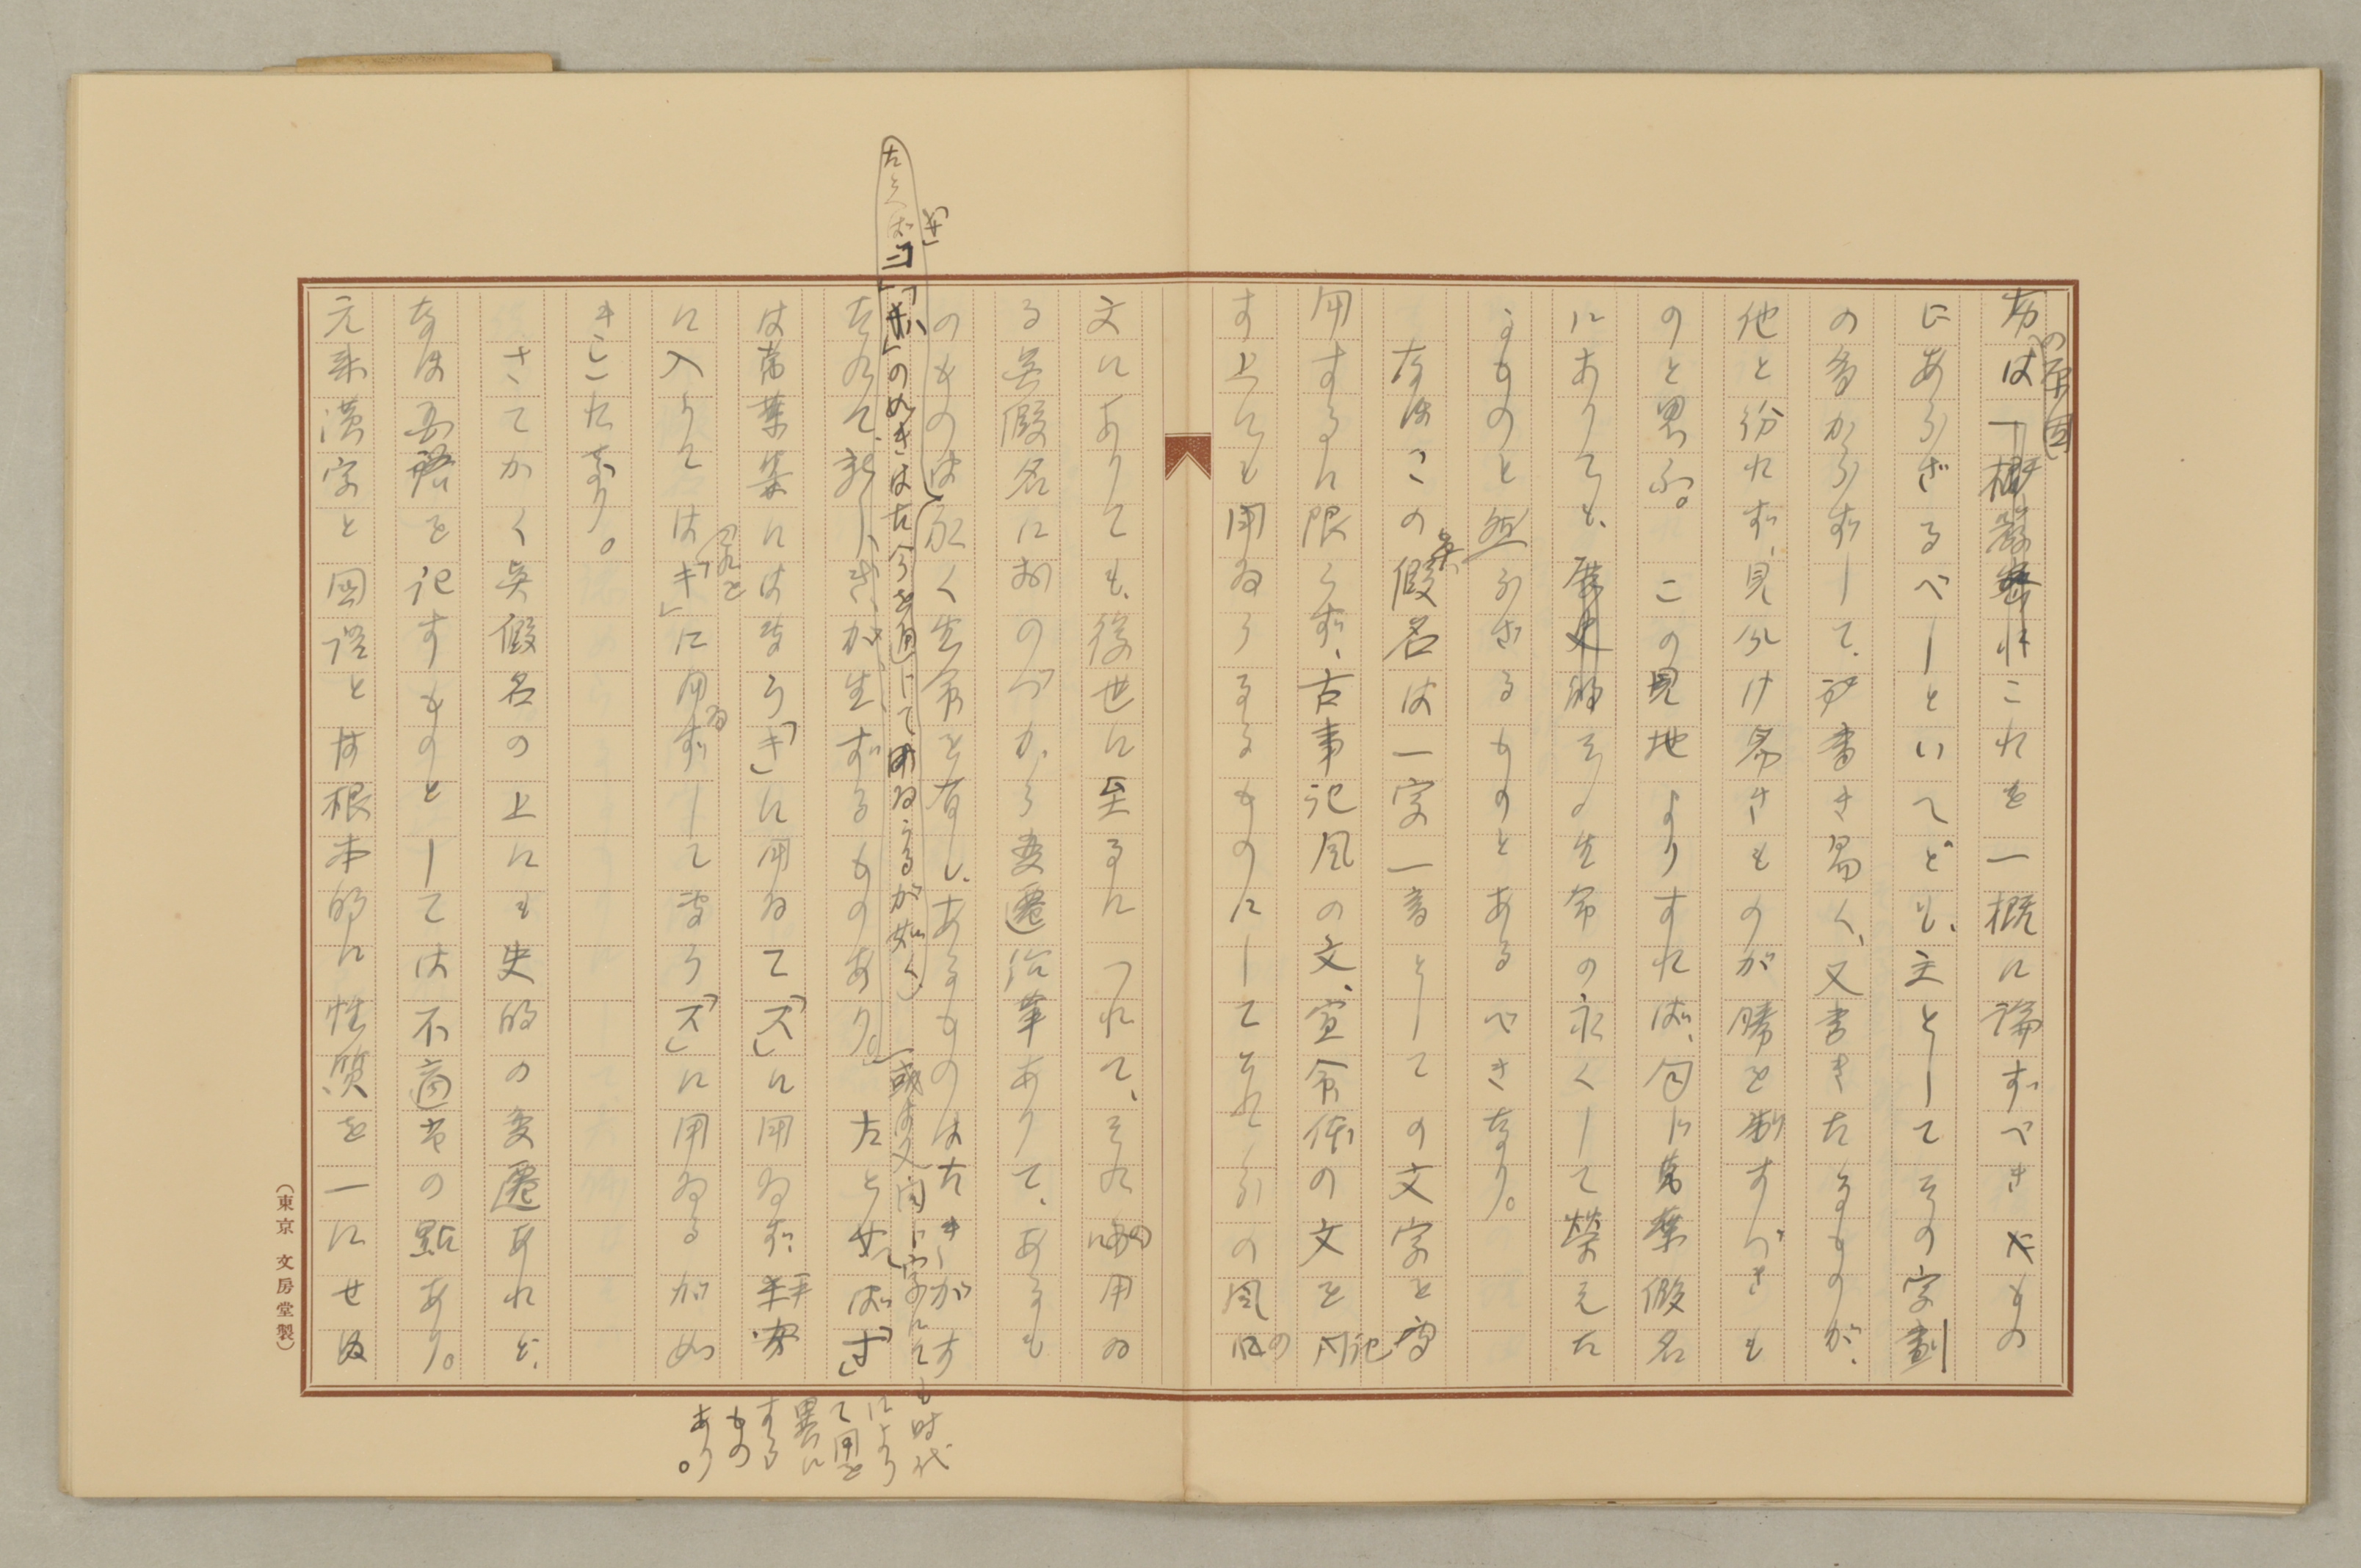 の原因
布は一概にこれを一概に論ずべきもの
にあらざるべしといへども、主としてその字劃
の多からずして、書き易く、又書きたるものが、
他と紛れず、見分け易きものが勝を制すべきも
のと思ふ。この見地よりすれば、同じ萬葉假名
にありても、歴史的その生命の永くして榮えた
るものと然らざるものとあるべきなり。
なほこの假名は一字一音としての文字を寫
用するに限らず、古事記風の文、宣命体の文を記
す上にも用ゐらるるものにしてそれらの風の
文にありても、後世に至るにつれて、その用ゐ
る假名におのづから変遷沿革ありて、あるも
のものは永く生命を有し、あるものは古きがす
たとへば「ニ」「キ」のめきは古今を通じて用ゐらるるが如く、
或は又同じ字にても時代
によりて用を異にするものあり。
たれて新しきが生ずるものあり。たとせば「す」
は萬葉集には專ら「き」に用ゐて「ズ」に用ゐず、
に入りては「き」に用ゐずして專ら「ズ」に用ゐるが如
きこれなり。
さてかく假名の上にも史的の変遷あれど、
なほ國語を記すものとしては不適当の點あり。
元来漢字と國語とは根本的に性質を一にせぬ
(東京 文房堂製)